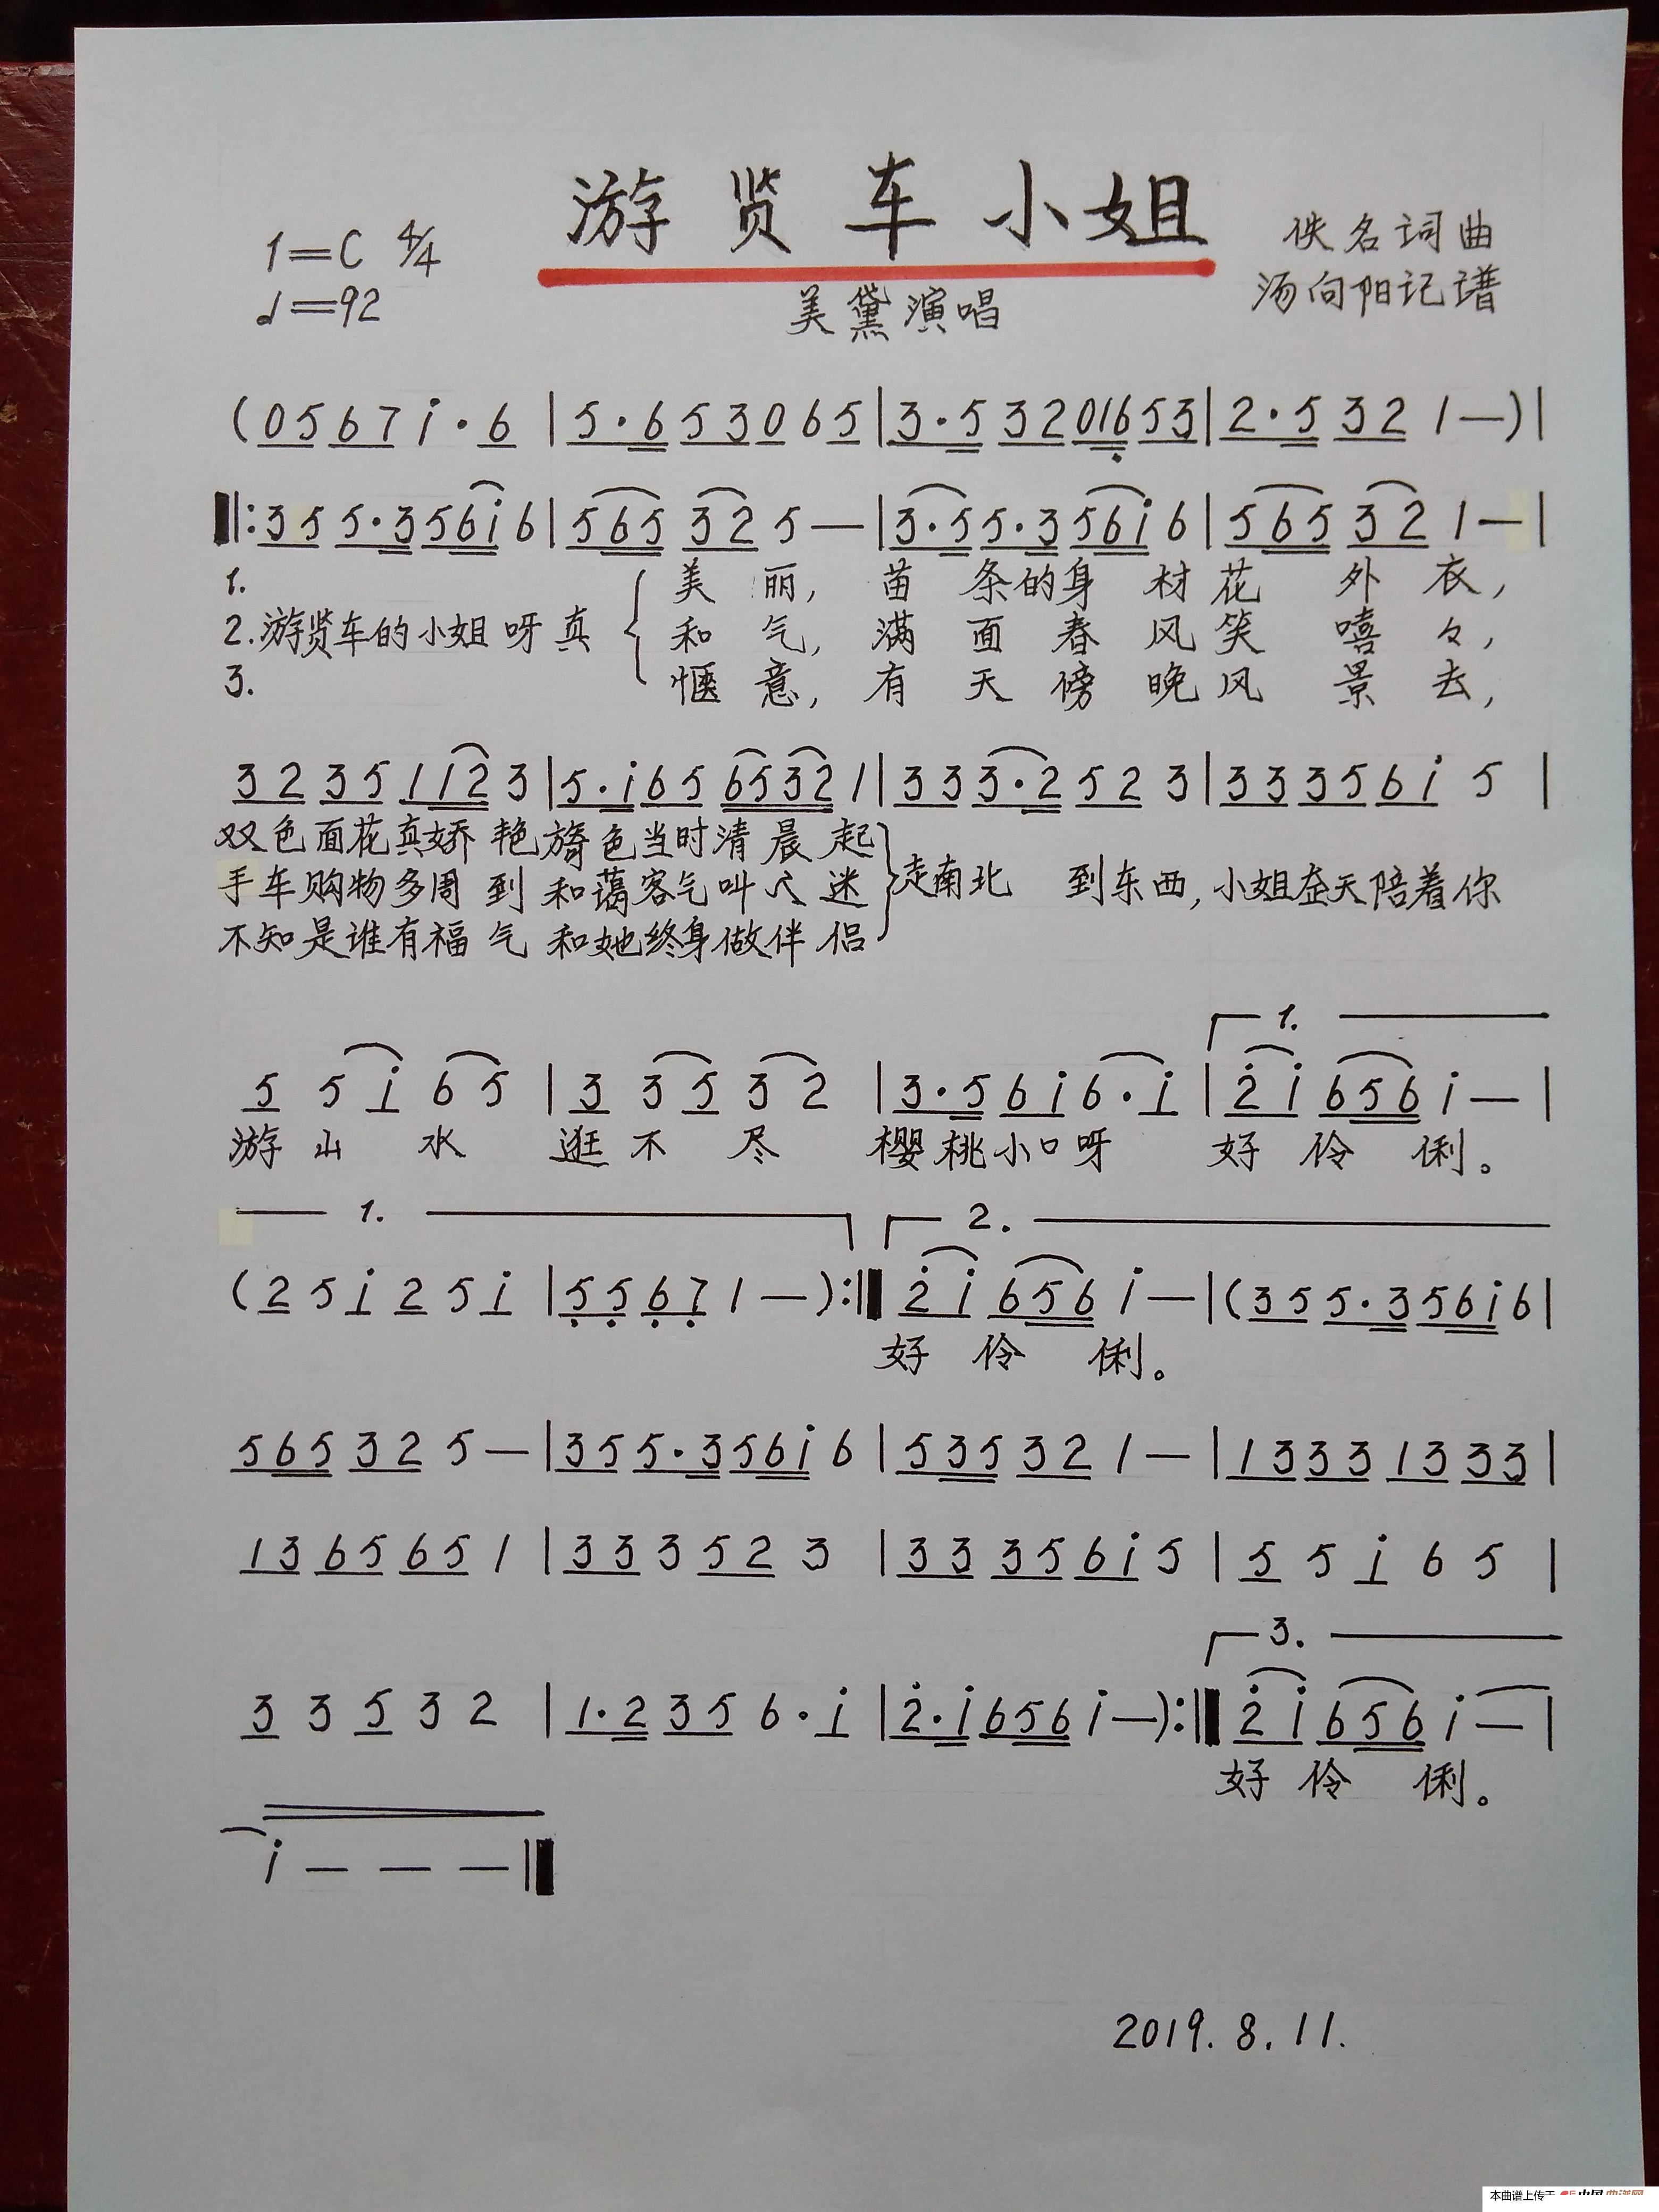 游贤车小姐
1=C 4/4
♩=92
佚名词曲
汤向阳记谱
美黛演唱
(0 5 6 7 i·6 | 5·6 5 3 0 6 5 | 3·5 3 2 0 1 6 5 3 | 2·5 3 2 1 —) |
‖: 3 5 5·3 5 6 i 6 | 5 6 5 3 2 5 — | 3·5 5·3 5 6 i 6 | 5 6 5 3 2 1 — |
1. 美丽, 苗条的身材花外衣,
2. 游贤车的小姐呀真 { 和气, 满面春风笑嘻々,
3. 惬意, 有天傍晚风景去,
3 2 3 5 1 1 2 3 | 5·i 6 5 6 5 3 2 1 | 3 3 3·2 5 2 3 | 3 3 3 5 6 i 5 |
双色面花真娇艳旖色当时清晨起
手车购物多周到和蔼客气叫人迷 } 走南北 到东西, 小姐在天陪着你
不知是谁有福气和她终身做伴侣
5 5 i 6 5 | 3 3 5 3 2 | 3·5 6 i 6·i | 1. 2 i 6 5 6 i — |
游山水 逛不尽 樱桃小口呀 好伶俐。
1. 2.
(2 5 i 2 5 i | 5 5 6 7 1 —) :‖ 2 i 6 5 6 i — | (3 5 5·3 5 6 i 6 |
好伶俐。
5 6 5 3 2 5 — | 3 5 5·3 5 6 i 6 | 5 3 5 3 2 1 — | 1 3 3 3 1 3 3 3 |
1 3 6 5 6 5 1 | 3 3 3 5 2 3 | 3 3 3 5 6 i 5 | 5 5 i 6 5 |
3.
3 3 5 3 2 | 1·2 3 5 6·i | 2·i 6 5 6 i —) :‖ 2 i 6 5 6 i — |
好伶俐。
i — — — ‖
2019.8.11.
本曲谱上传于